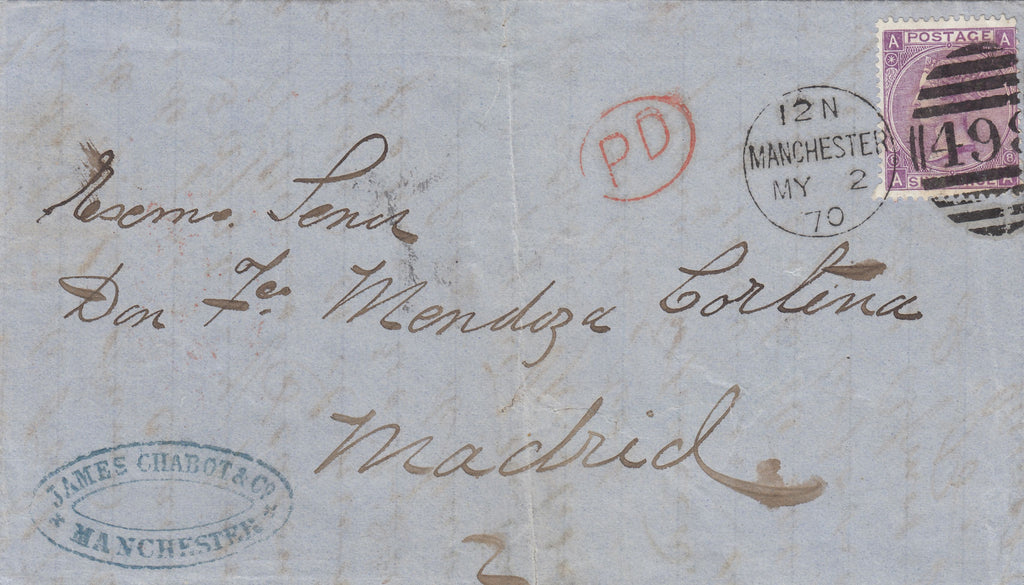 A POSTAGE A
12 N
MANCHESTER
MY 2
70
498
A SIXPENCE A
PD
Excmo. Senor
Don Fco. Mendoza Cortina
Madrid
JAMES CHABOT & Co
MANCHESTER